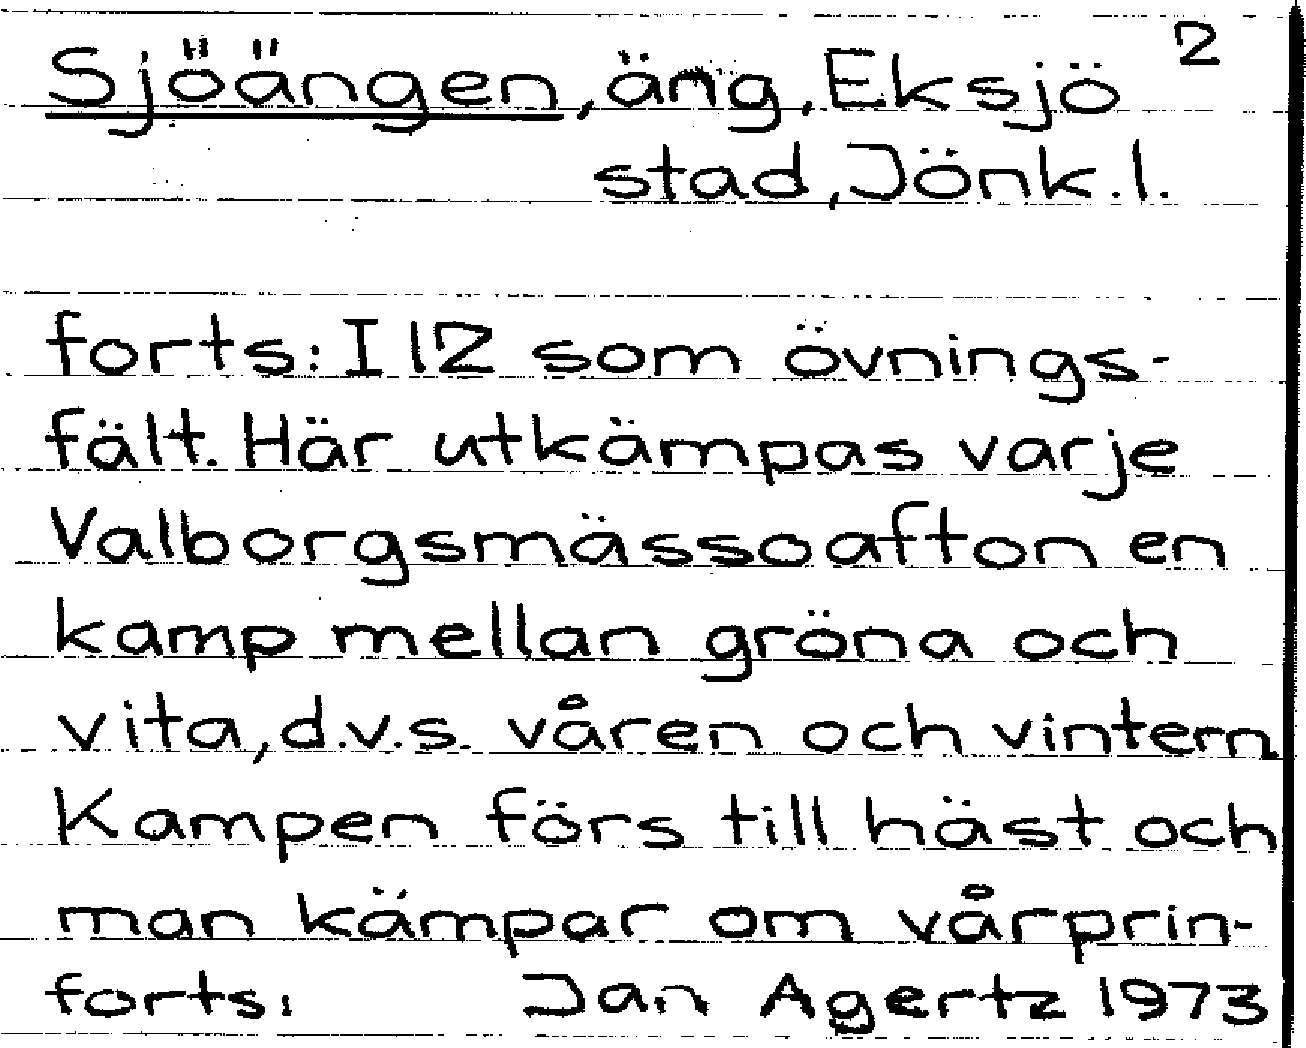 Sjöängen, äng, Eksjö 2
stad, Jönk.l.
forts: I 12 som övnings-
fält. Här utkämpas varje
Valborgsmässoafton en
kamp mellan gröna och
vita, d.v.s. våren och vintern
Kampen förs till häst och
man kämpar om vårprin-
forts: Jan Agertz 1973